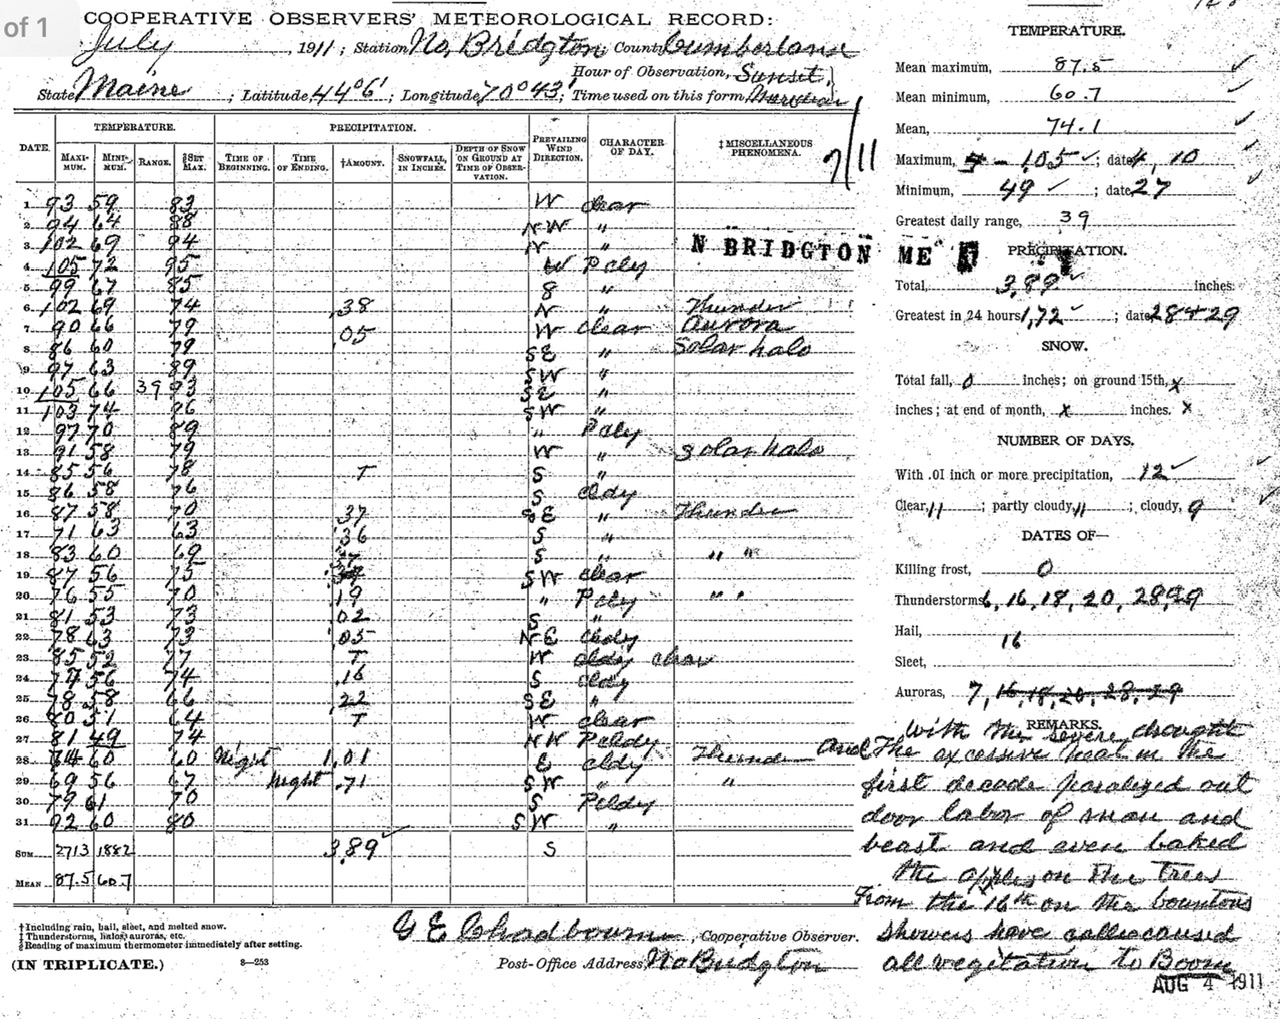 of 1
COOPERATIVE OBSERVERS' METEOROLOGICAL RECORD:
July, 1911; Station, No. Bridgton; County, Cumberland
Hour of Observation, Sunset
State, Maine; Latitude, 44° 6'; Longitude, 70° 43'; Time used on this form,
DATE. TEMPERATURE. PRECIPITATION. PREVAILING WIND DIRECTION. CHARACTER OF DAY. ‡MISCELLANEOUS PHENOMENA.
MAXIMUM. MINIMUM. RANGE. §SET MAX. TIME OF BEGINNING. TIME OF ENDING. †AMOUNT. SNOWFALL, IN INCHES. DEPTH OF SNOW ON GROUND AT TIME OF OBSERVATION.
7/11
1 93 59 83 W clear
2 94 64 88 NW "
3 102 69 94 N "
4 105 72 95 W Pcly
5 99 67 85 S "
6 102 69 74 .38 N " Thunder
7 90 66 79 05 W clear Aurora
8 86 60 79 SE " Solar halo
9 97 63 89 SW "
10 105 66 39 93 SE "
11 103 74 96 SW "
12 97 70 89 " Pcly
13 91 58 79 W " Solar halo
14 85 56 78 T S "
15 86 58 76 S cldy
16 87 58 70 .37 SE " Thunder
17 71 63 63 .36 S "
18 83 60 69 S " " "
19 87 56 75 SW clear
20 76 55 70 .19 " Pcly " "
21 81 53 73 02 S "
22 78 63 73 .05 NE cldy
23 85 52 77 T W cldy clear
24 74 56 74 .16 S cldy
25 78 58 66 .22 SE "
26 80 51 64 T W clear
27 81 49 74 NW Pcldy
28 74 60 60 Night 1.01 E cldy Thunder
29 69 56 67 Night .71 SW " "
30 79 61 70 S Pcldy
31 92 60 80 SW "
SUM 2713 1882 3.89 S
MEAN 87.5 60.7
†Including rain, hail, sleet, and melted snow.
‡Thunderstorms, halos, auroras, etc.
§Reading of maximum thermometer immediately after setting.
(IN TRIPLICATE.) 8—253
G E Chadbourne, Cooperative Observer.
Post-Office Address, No Bridgton
N BRIDGTON ME
TEMPERATURE.
Mean maximum, 87.5
Mean minimum, 60.7
Mean, 74.1
Maximum, 105; date, 4, 10
Minimum, 49; date, 27
Greatest daily range, 39
PRECIPITATION.
Total, 3.89 inches.
Greatest in 24 hours, 1.72; date, 28+29
SNOW.
Total fall, 0 inches; on ground 15th, x
inches; at end of month, x inches. x
NUMBER OF DAYS.
With .01 inch or more precipitation, 12
Clear, 11; partly cloudy, 11; cloudy, 9
DATES OF—
Killing frost, 0
Thunderstorms, 6, 16, 18, 20, 28, 29
Hail, 16
Sleet,
Auroras, 7, 16, 18, 20, 28, 29
REMARKS.
With the severe drought
and The excessive heat in the
first decade paralized out
door labor of man and
beast and even baked
the apples on the trees
From the 16th on the bountous
showers have caused
all vegitation to Boom
AUG 4 1911